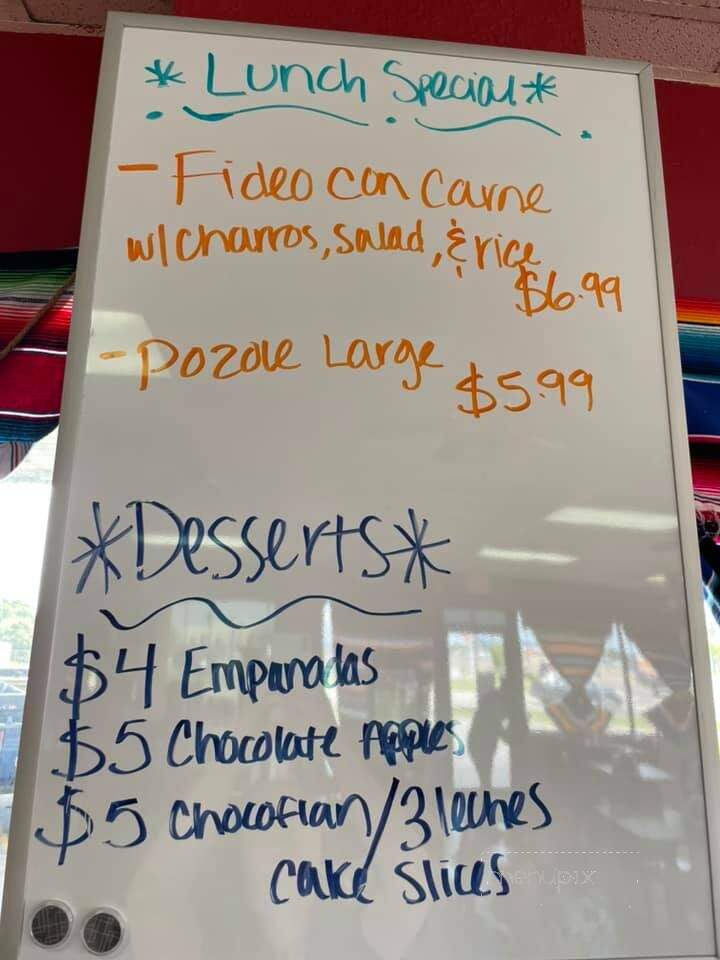 * Lunch Special *
- Fideo con Carne
w/ charros, salad, & rice
$6.99
- Pozole Large
$5.99
*Desserts*
$4 Empanadas
$5 Chocolate Apples
$5 Chocoflan/3 leches
cake slices
menupix